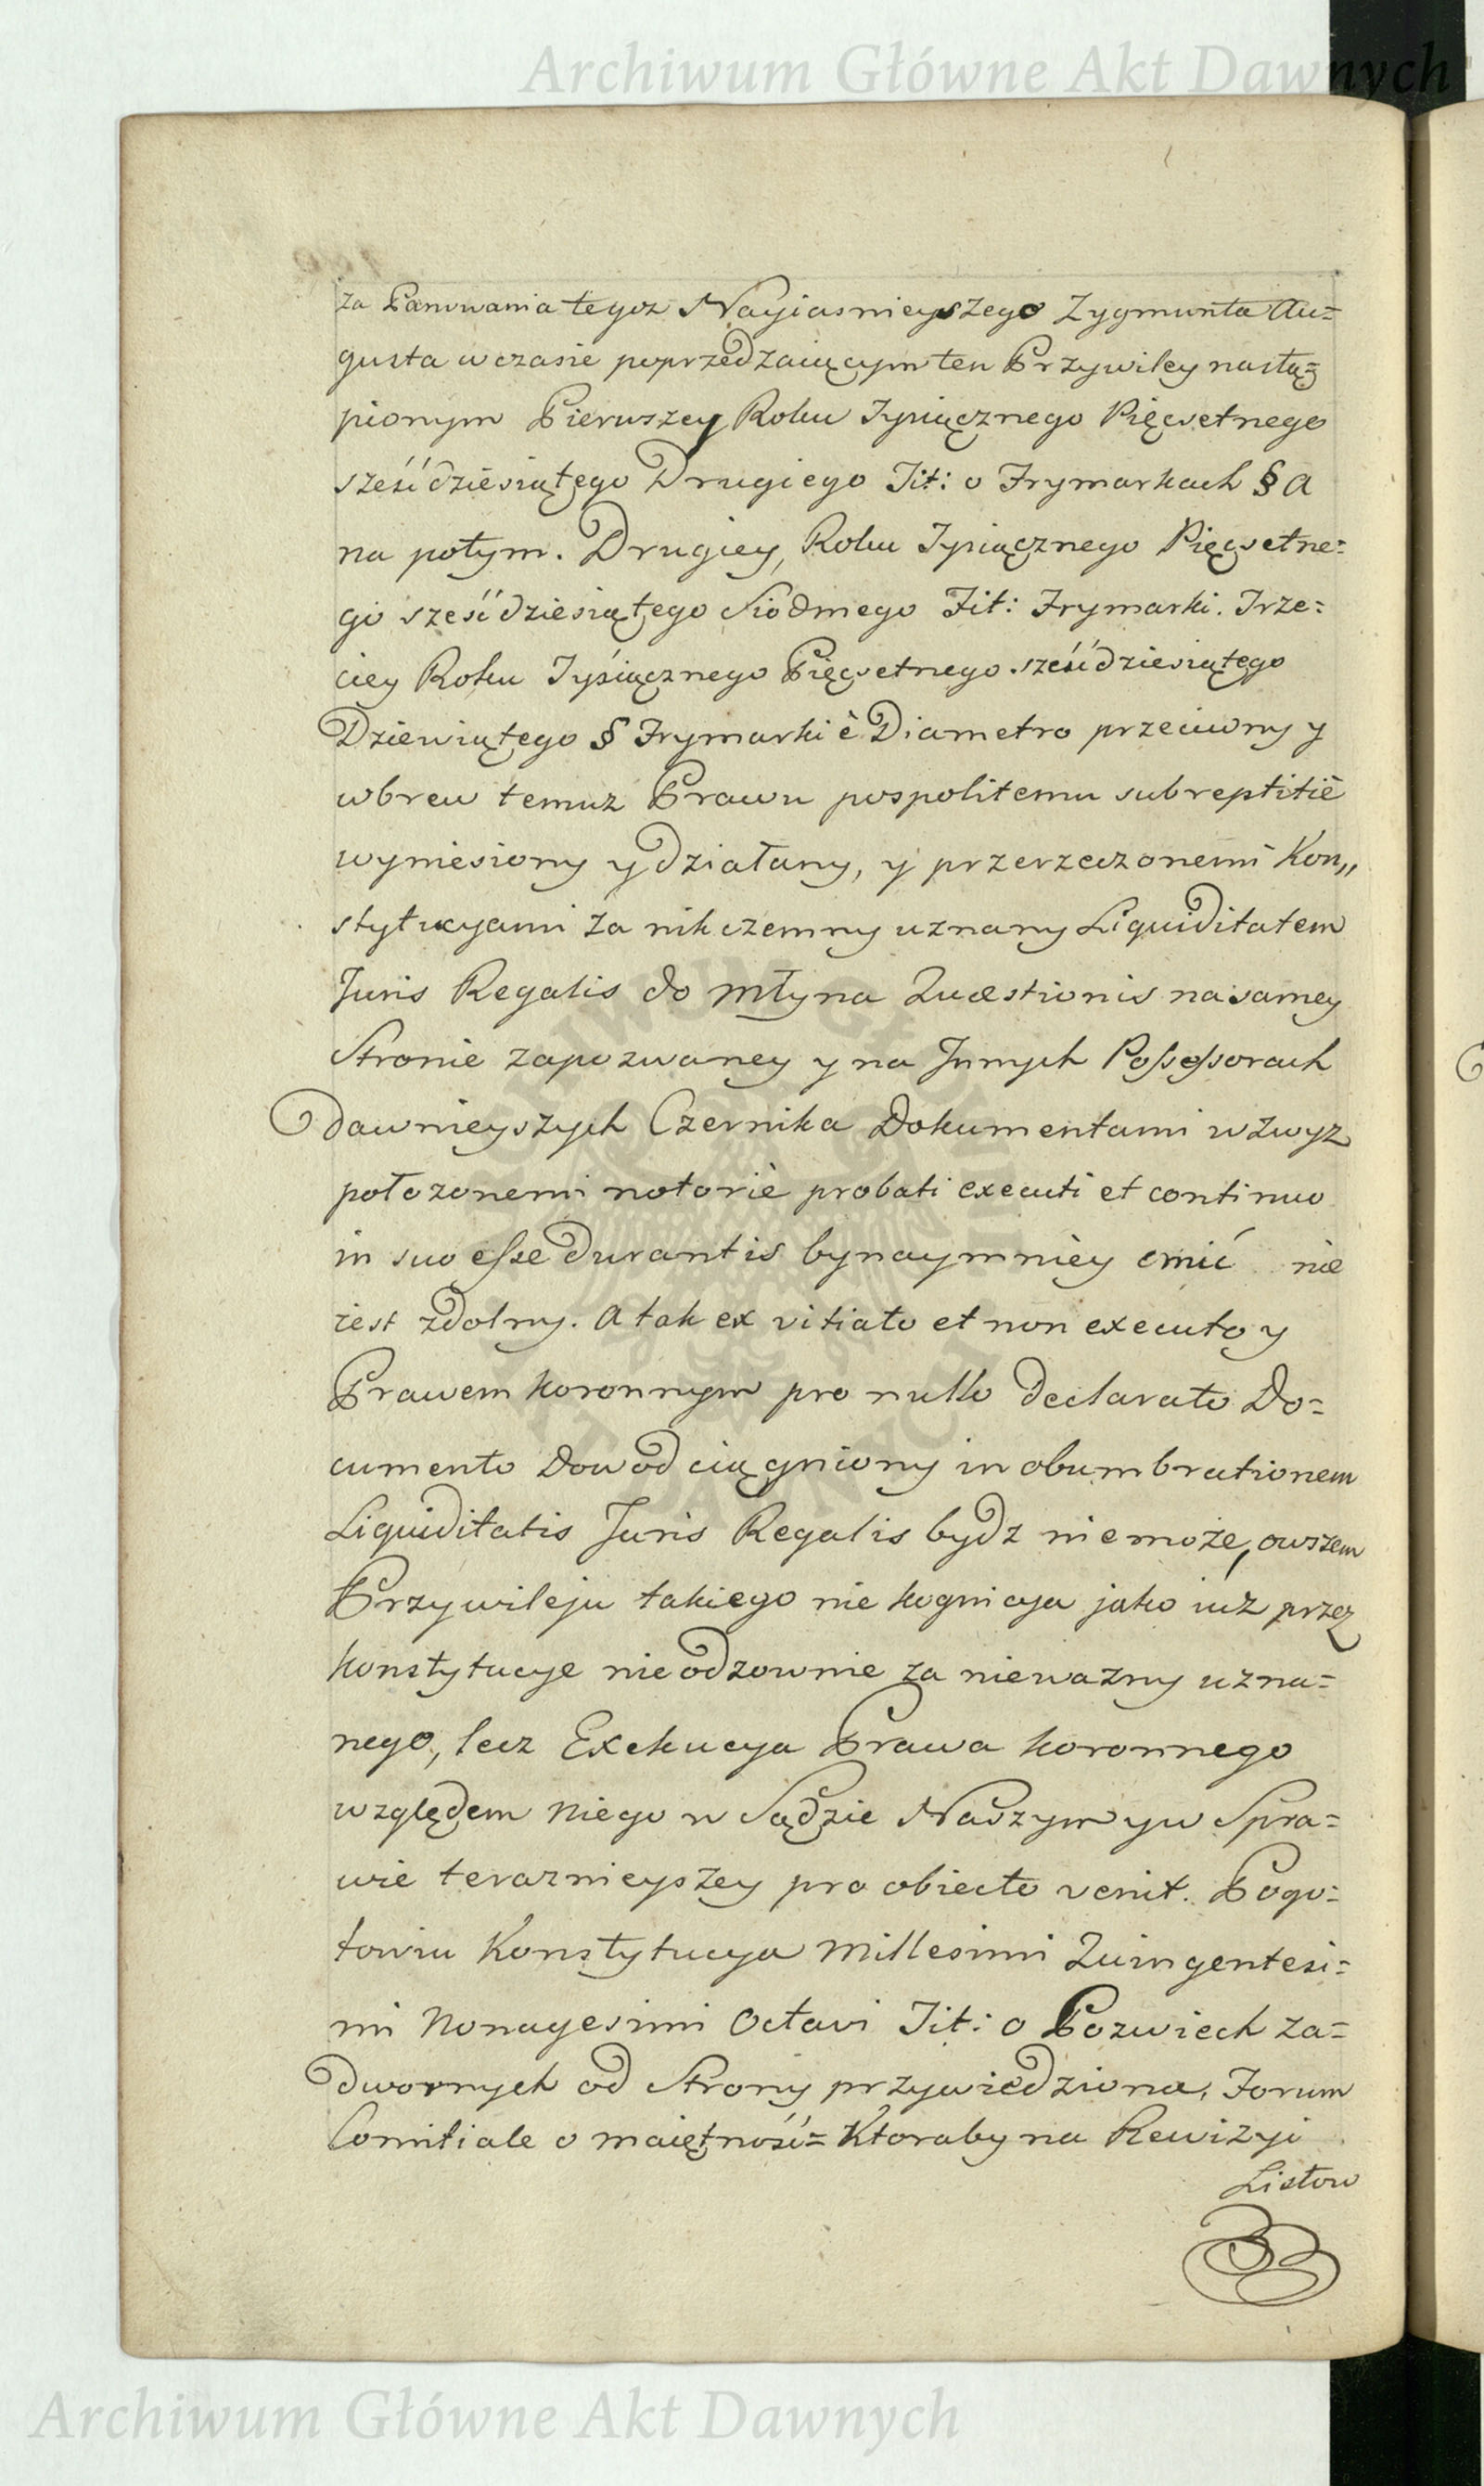 Archiwum Główne Akt Dawnych
za Panowania tegoz Nayiasnieyszego Zygmunta Au=
gusta w czasie poprzedzaiącym ten Przywiley nastą=
pionym Pierwszey Roku Tysiącznego Pięcsetnego
sześćdziesiątego Drugiego Tit: o Frymarkach § A
na potym. Drugiey, Roku Tysiącznego Pięcsetne=
go sześćdziesiątego Siodmego Tit: Frymarki. Trze=
ciey Roku Tyśiącznego Pięcsetnego sześćdziesiątego
Dziewiątego § Frymarki è Diametro przeciwny y
wbrew temuz Prawu pospolitemu subreptitiè
wyniesiony y działany, y przerzeczonemi Kon„
stytucyami za nikczemny uznany Liquiditatem
Juris Regalis do Młyna Quæstionis na samey
Stronie zapozwaney y na Jnnych Possessorach
dawnieyszych Czernika Dokumentami wzwyz
połozonemi notoriè probati executi et continuo
in suo esse durantis bynaymniey cmić nie
iest zdolny. A tak ex vitiato et non executo y
Prawem koronnym pro nullo declarato Do=
cumento Dowod ciągniony in obumbrationem
Liquiditatis Juris Regalis bydz nie może, owszem
Przywileju takiego nie kognicya jako iuż przez
konstytucye nieodzownie za nieważny uzna=
nego, lecz Exekucya Prawa koronnego
względem niego w Sądzie Naszym y w Spra=
wie teraznieyszey pro obiecto venit. Pogo=
towiu Konstytucya Millesimi Quingentesi=
mi Nonagesimi Octavi Tit: o Pozwiech za=
dwornych od Strony przywiedziona, Forum
Comitiale o maiętność= Ktoraby na Rewizyi
Listow
Archiwum Główne Akt Dawnych